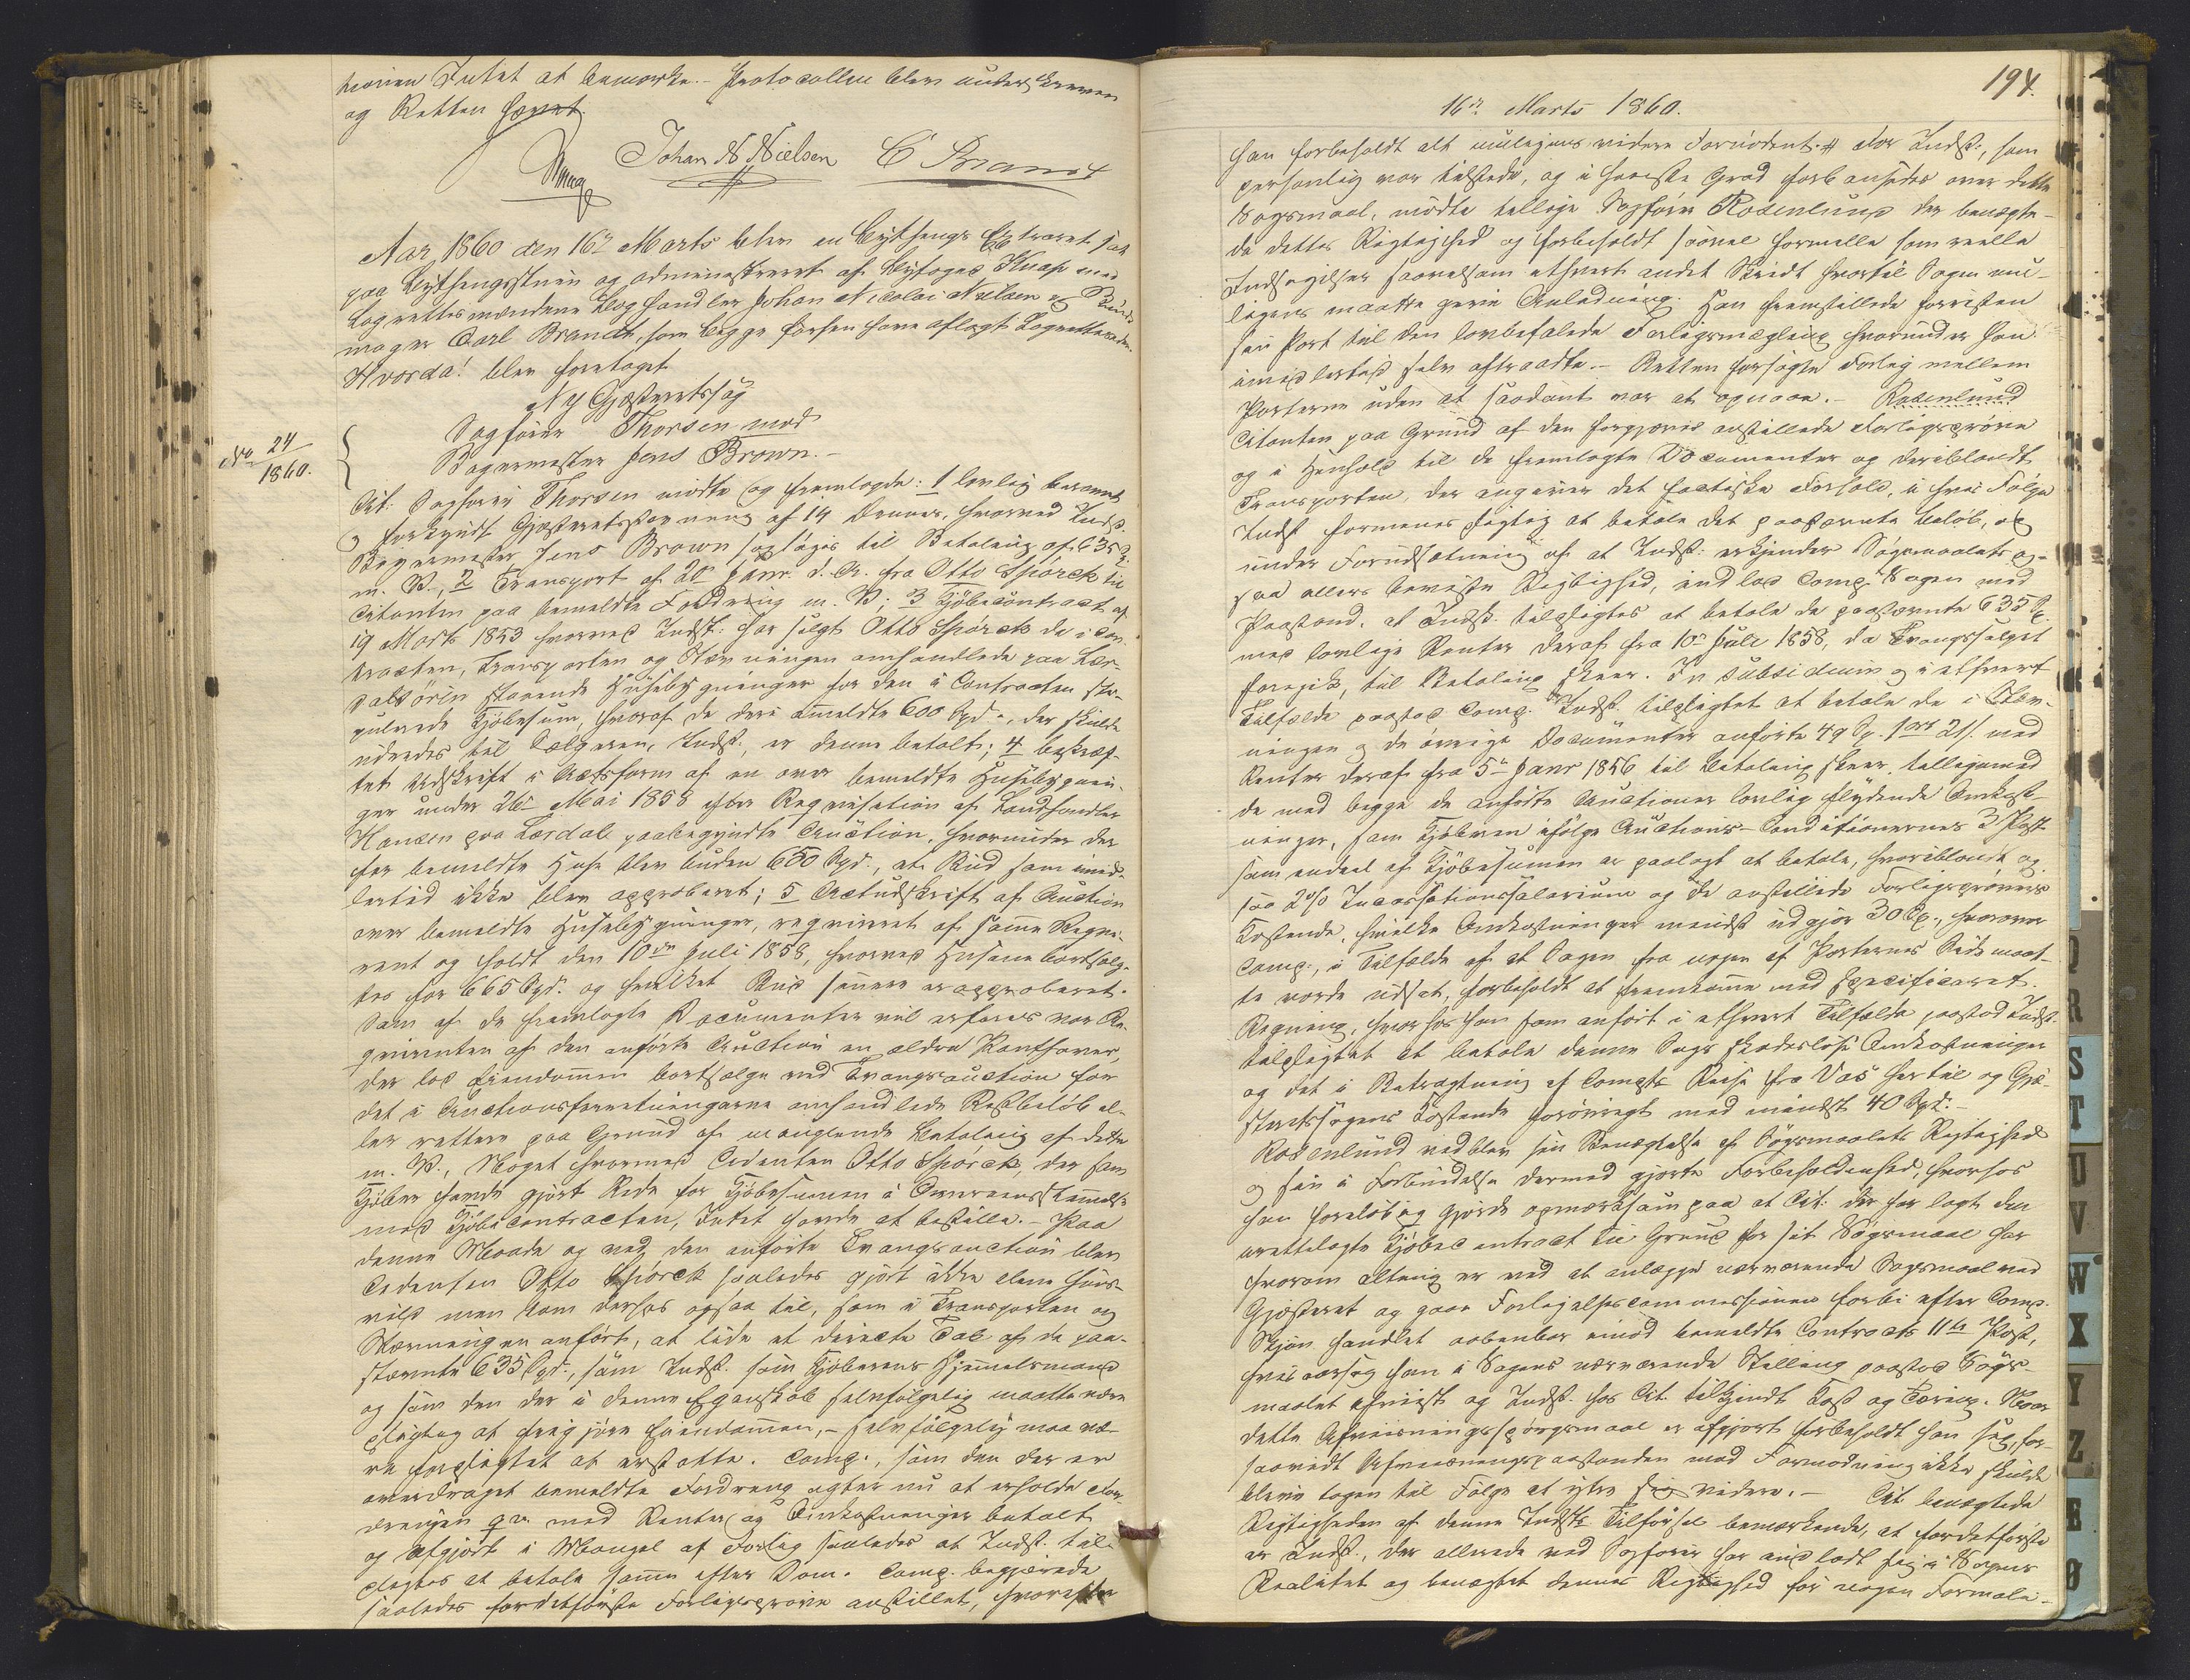 herien Intet at bemærke. – Protocollen blev underskreven
og Retten hævet.
Johan N Nielsen C Brandt
Aar 1860 den 16de Marts blev en Bythings Extraret sat
paa Bythingsstuen og administreret af Byfoged Knap med
Lagrettesmændene Høghandler Johan Nicolai Nielsen og Bund-
mager Carl Brandt, som begge forhen have aflagt Lagretteseden.
Hvorda! blev foretaget
Ny Gjæsteretssag
No 24/1860.
Sagfører Thorsen mod
Bagermester Jens Brown. –
Cit. Sagfører Thorsen mødte og fremlagde: 1 lovlig beramet
og forkyndt Gjæsteretsstævning af 14 Dennes, hvorved Indst.
Bagermester Jens Brown sagsøges til Betaling af 635 Spd.
m. V., 2 Transport af 20 Janr. d. A. fra Otto Spörck til
Citanten paa bemeldte Fordring m. V; 3 Kjøbecontract af
19 Marts 1853 hvorved Indst: har solgt Otto Spörck de i Con-
tracten, Transporten og Stævningen omhandlede paa Lær-
dalsören staaende Huusebygninger for den i Contracten sti-
pulerede Kjøbesum, hvoraf de deri anmeldte 600 Spd., der skulde
udredes til Sælgeren, Indst., er denne betalt; 4 bekræf-
tet Udskrift i Actsform af en over bemeldte Huusebygnin-
ger under 26de Mai 1858 efter Reqvisition af Landhandler
Hansen paa Lærdal paabegyndte Auction, hvorunder der
for bemeldte Huse blev buden 650 Spd., et Bud som imid-
lertid ikke blev approberet; 5 Actudskrift af Auction
over bemeldte Huusebygninger, reqvireret af samme Reqvi-
rent og holdt den 10de Juli 1858, hvorved Husene bortsolg-
tes for 665 Spd. og hvilket Bud senere er approberet.
Som af de fremlagte Documenter vil erfares var Re-
qvirenten af den anførte Auction en ældre Panthaver,
der lod Eiendommen bortsælge ved Tvangsauction for
det i Auctionsforretningerne omhandlede Restbeløb el-
ler rettere paa Grund af manglende Betaling af dette
m. V., Noget hvormed Cedenten Otto Spörck, der som
Kjøber havde gjort Rede for Kjøbesummen i Overensstemmelse
med Kjøbecontracten, Intet havde at bestille. – Paa
denne Maade og ved den anførte Tvangsauction blev
Cedenten Otto Spörck saaledes gjort ikke alene huus-
vild men kom derhos ogsaa til, som i Transporten og
Stævningen anført, at lide et directe Tab af de paa-
stævnte 635 Spd., som Indst. som Kjøberens Hjemmelsmand
og som den der i denne Egenskab selvfølgelig maatte være
pligtig at frigjøre Eiendommen, – selvfølgelig maa væ-
re forpligtet at erstatte. Comp., som den der er
overdraget bemeldte Fordring agter nu at erholde For-
dringen qv. med Renter og Omkostninger betalt
og afgjort i Mangel af Forlig saaledes at Indst. til-
pligtes at betale samme efter Dom. Comp. begjærede
saaledes fordetførste Forligsprøve anstillet, hvorefter
194.
16de Marts 1860.
han forbeholdt alt muligens videre Fornødent. # For Indst., som
personlig var tilstede, og i høieste Grad forbausedes over dette
Søgsmaal, mødte tillige Sagfører Rosenlund der benægte-
de dettes Rigtighed og forbeholdt saavel formelle som reelle
Indsigelser saavelsom ethvert andet Skridt hvortil Sagen mu-
ligens maatte give Anledning. Han fremstillede forresten
sin Part til den lovbefalede Forligsmægling hvorunder han
imidlertid selv aftraadte. – Retten forsøgte Forlig mellem
Parterne uden at saadant var at opnaae. – Rosenlund
Citanten paa Grund af den forgjæves anstillede Forligsprøve
og i Henhold til de fremlagte Documenter og deriblandt
Transporten, der angiver det factiske Forhold, i hvis Følge
Indst formenes pligtig at betale det paastævnte Beløb, og
under Forudsætning af at Indst: erkjender Søgsmaalets og-
saa ellers beviste Rigtighed, indlod Comp. Sagen med
Paastand, at Indst. tilpligtes at betale de paastævnte 635 Spd.
med lovlige Renter deraf fra 10de Juli 1858, da Tvangssalget
foregik, til Betaling skeer. In subsidium og i ethvert
Tilfælde paastod Comp. Indst. tilpligtet at betale de i Stæv-
ningen og de øvrige Documenter anførte 49 Sp. 1 ort 21 s. med
Renter deraf fra 5te Janr 1856 til Betaling skeer, tilligemed
de med begge de anførte Auctioner lovlig flydende Omkost-
ninger, som Kjøberen ifølge Auctions-Conditionernes 3 Post
som endeel af Kjøbesummen er paalagt at betale, hvoriblandt og-
saa 2 % Incassationssalarium og de anstillede Forligsprøvers
Kostende, hvilke Omkostninger mindst udgjør 30 Sp., hvorover
Comp., i Tilfælde af at Sagen fra nogen af Parternes Side maat-
te vorde udsat, forbeholdt at fremkomme med specificeret
Regning, hvorhos han som anført i ethvert Tilfælde paastod Indst.
tilpligtet at betale denne Sags skadesløse Omkostninger
og det i Betragtning af Comps Reise fra Vos hertil og Gjæ-
steretssagens Kostende forøvrigt med mindst 40 Spd. –
Rosenlund vedblev sin Benægtelse af Søgsmaalets Rigtighed
og sin i Forbindelse dermed gjorte Forbeholdenhed, hvorhos
han foreløbig gjorde opmærksom paa at Cit: der har lagt den
irettelagte Kjøbecontract til Grund for sit Søgsmaal har
hvorom Alting er ved at anlægge nærværende Søgsmaal ved
Gjæsteret og gaae Forligelsescommissionen forbi efter Comp.
Skjøn handlet aabenbar imod bemeldte Contracts 11te Post,
hvisaarsag han i Sagens nærværende Stilling paastod Søgs-
maalet afviist og Indst. hos Cit. tilkjendt Kost og Tæring. Naar
dette Afviisningsspørgsmaal er afgjort forbeholdt han sig, for-
saavidt Afviisningspaastanden mod Formodning ikke skulde
blive tagen til Følge at ytre sig videre. – Cit. benægtede
Rigtigheden af denne Indsts Tilførsel bemærkende, at fordetførste
er Indst., der allerede ved Sagfører har indladt sig i Sagens
Realitet og benægtet dennes Rigtighed før nogen Formali-